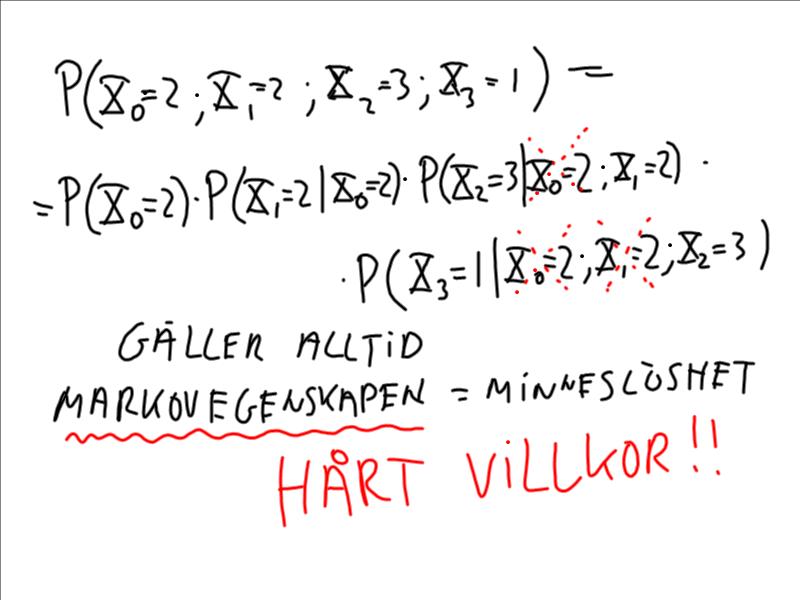 P(X₀=2 ; X₁=2 ; X₂=3 ; X₃=1) =
= P(X₀=2) · P(X₁=2 | X₀=2) · P(X₂=3 | X₀=2 ; X₁=2) ·
· P(X₃=1 | X₀=2 ; X₁=2 ; X₂=3)
GÄLLER ALLTID
MARKOVEGENSKAPEN = MINNESLÖSHET
HÅRT VILLKOR!!